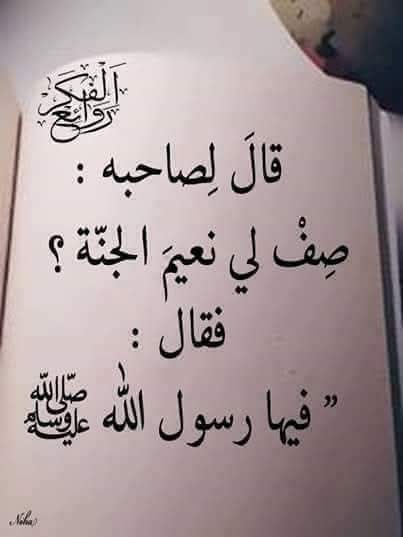 روائع الفكر
قالَ لِصاحبه :
صِفْ لي نعيمَ الجنّة ؟
فقال :
” فيها رسول الله ﷺ
Noha